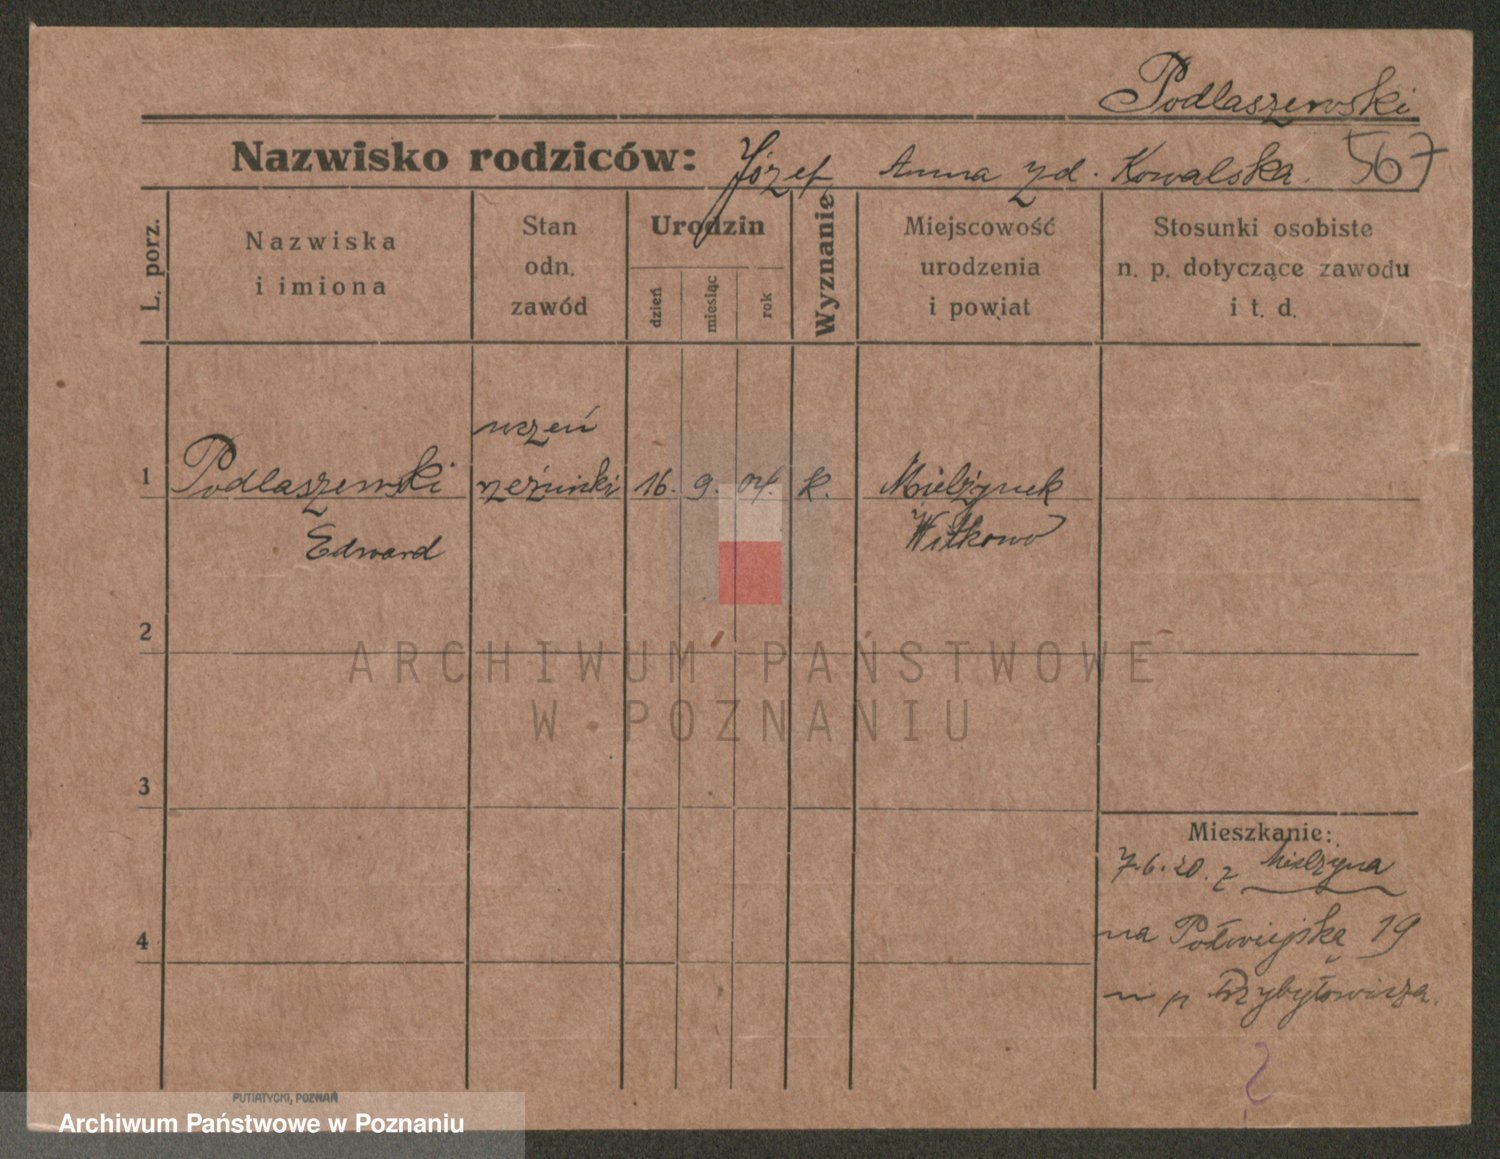 Podlaszewski
Nazwisko rodziców: Józef Anna zd. Kowalska. 567
L. porz.
Nazwiska
i imiona
Stan
odn.
zawód
Urodzin
dzień
miesiąc
rok
Wyznanie
Miejscowość
urodzenia
i powiat
Stosunki osobiste
n. p. dotyczące zawodu
i t. d.
uczeń
1 Podlaszewski rzeźnicki 16. 9. 04. k. Mielżynek
Edward Witkowo
2
ARCHIWUM PAŃSTWOWE
W POZNANIU
3
Mieszkanie:
7.6.20. z Mielżyna
4
na Półwiejską 19
u p Przybyłowicza.
PUTIATYCKI, POZNAŃ
Archiwum Państwowe w Poznaniu